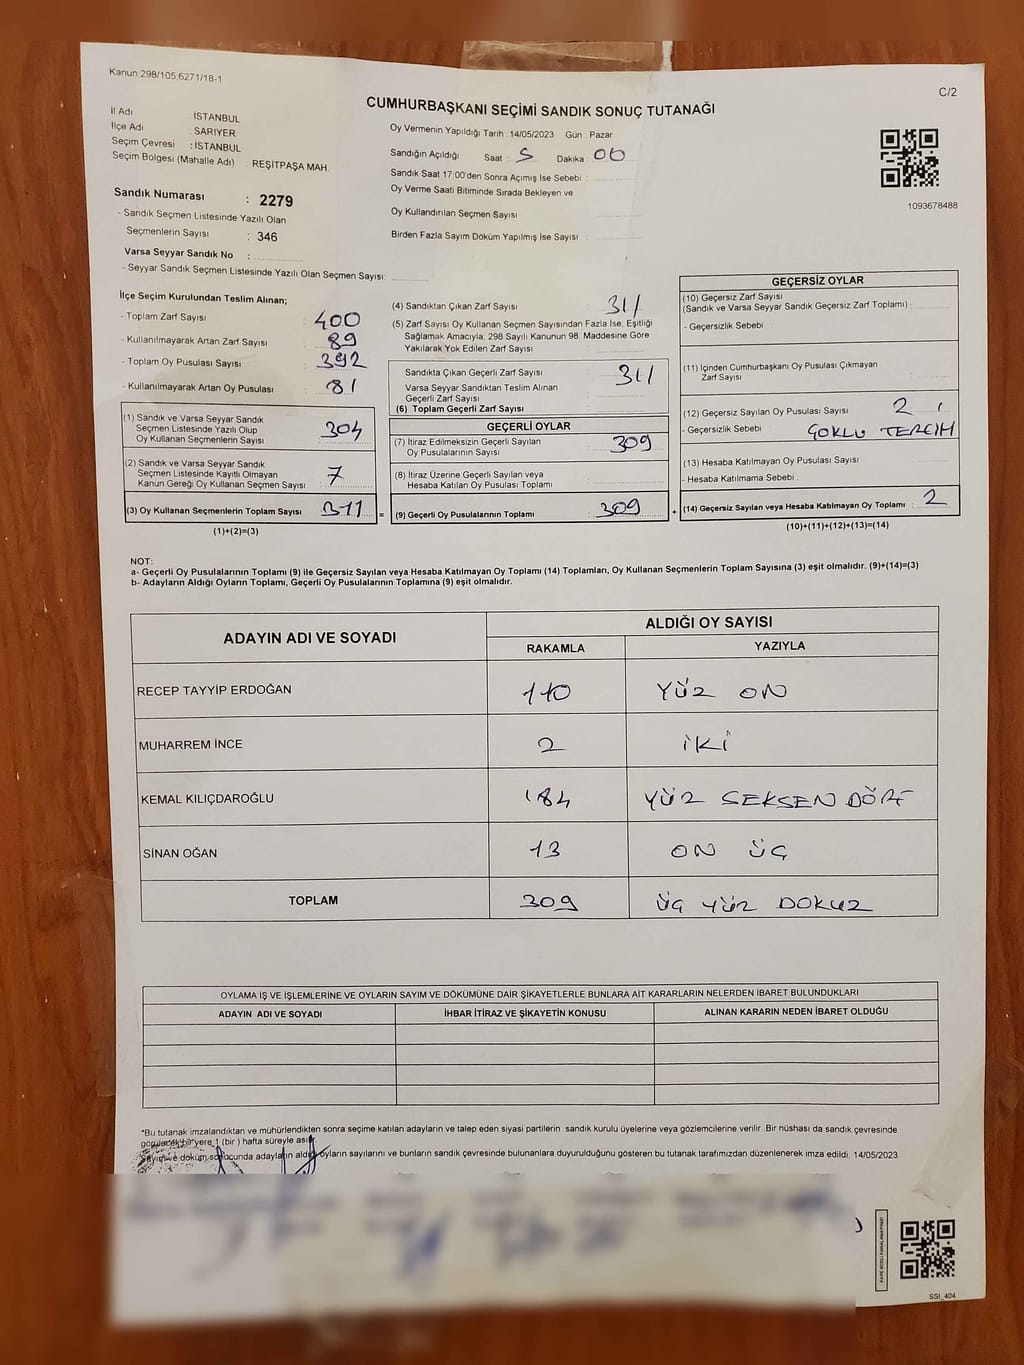 Kanun:298/105,6271/18-1
C/2
CUMHURBAŞKANI SEÇİMİ SANDIK SONUÇ TUTANAĞI
İl Adı : İSTANBUL
İlçe Adı : SARIYER
Seçim Çevresi : İSTANBUL
Seçim Bölgesi (Mahalle Adı) : REŞİTPAŞA MAH.
Sandık Numarası : 2279
- Sandık Seçmen Listesinde Yazılı Olan
Seçmenlerin Sayısı : 346
Varsa Seyyar Sandık No :
- Seyyar Sandık Seçmen Listesinde Yazılı Olan Seçmen Sayısı:
Oy Vermenin Yapıldığı Tarih : 14/05/2023 Gün : Pazar
Sandığın Açıldığı Saat : 5 Dakika : 00
Sandık Saat 17:00'den Sonra Açımış İse Sebebi :
Oy Verme Saati Bitiminde Sırada Bekleyen ve
Oy Kullandırılan Seçmen Sayısı
Birden Fazla Sayım Döküm Yapılmış İse Sayısı
1093678488
İlçe Seçim Kurulundan Teslim Alınan;
- Toplam Zarf Sayısı : 400
- Kullanılmayarak Artan Zarf Sayısı : 89
- Toplam Oy Pusulası Sayısı : 392
- Kullanılmayarak Artan Oy Pusulası : 81
(1) Sandık ve Varsa Seyyar Sandık
Seçmen Listesinde Yazılı Olup
Oy Kullanan Seçmenlerin Sayısı : 304
(2) Sandık ve Varsa Seyyar Sandık
Seçmen Listesinde Kayıtlı Olmayan
Kanun Gereği Oy Kullanan Seçmen Sayısı : 7
(3) Oy Kullanan Seçmenlerin Toplam Sayısı : 311
(1)+(2)=(3)
=
(4) Sandıktan Çıkan Zarf Sayısı : 311
(5) Zarf Sayısı Oy Kullanan Seçmen Sayısından Fazla İse, Eşitliği
Sağlamak Amacıyla; 298 Sayılı Kanunun 98. Maddesine Göre
Yakılarak Yok Edilen Zarf Sayısı :
Sandıkta Çıkan Geçerli Zarf Sayısı : 311
Varsa Seyyar Sandıktan Teslim Alınan
Geçerli Zarf Sayısı
(6) Toplam Geçerli Zarf Sayısı
GEÇERLİ OYLAR
(7) İtiraz Edilmeksizin Geçerli Sayılan
Oy Pusulalarının Sayısı : 309
(8) İtiraz Üzerine Geçerli Sayılan veya
Hesaba Katılan Oy Pusulası Toplamı
(9) Geçerli Oy Pusulalarının Toplamı : 309
+
GEÇERSİZ OYLAR
(10) Geçersiz Zarf Sayısı
(Sandık ve Varsa Seyyar Sandık Geçersiz Zarf Toplamı) :
- Geçersizlik Sebebi :
(11) İçinden Cumhurbaşkanı Oy Pusulası Çıkmayan
Zarf Sayısı :
(12) Geçersiz Sayılan Oy Pusulası Sayısı : 2
- Geçersizlik Sebebi : ÇOKLU TERCİH
(13) Hesaba Katılmayan Oy Pusulası Sayısı :
- Hesaba Katılmama Sebebi :
(14) Geçersiz Sayılan veya Hesaba Katılmayan Oy Toplamı : 2
(10)+(11)+(12)+(13)=(14)
NOT:
a- Geçerli Oy Pusulalarının Toplamı (9) ile Geçersiz Sayılan veya Hesaba Katılmayan Oy Toplamı (14) Toplamları, Oy Kullanan Seçmenlerin Toplam Sayısına (3) eşit olmalıdır. (9)+(14)=(3)
b- Adayların Aldığı Oyların Toplamı, Geçerli Oy Pusulalarının Toplamına (9) eşit olmalıdır.
ADAYIN ADI VE SOYADI
ALDIĞI OY SAYISI
RAKAMLA YAZIYLA
RECEP TAYYİP ERDOĞAN 110 YÜZ ON
MUHARREM İNCE 2 İKİ
KEMAL KILIÇDAROĞLU 184 YÜZ SEKSEN DÖRT
SİNAN OĞAN 13 ON ÜÇ
TOPLAM 309 ÜÇ YÜZ DOKUZ
OYLAMA İŞ VE İŞLEMLERİNE VE OYLARIN SAYIM VE DÖKÜMÜNE DAİR ŞİKAYETLERLE BUNLARA AİT KARARLARIN NELERDEN İBARET BULUNDUKLARI
ADAYIN ADI VE SOYADI İHBAR İTİRAZ VE ŞİKAYETİN KONUSU ALINAN KARARIN NEDEN İBARET OLDUĞU
*Bu tutanak imzalandıktan ve mühürlendikten sonra seçime katılan adayların ve talep eden siyasi partilerin sandık kurulu üyelerine veya gözlemcilerine verilir. Bir nüshası da sandık çevresinde
görülecek bir yere 1 (bir) hafta süreyle asılır.
Sayım ve döküm sonucunda adayların aldığı oyların sayılarını ve bunların sandık çevresinde bulunanlara duyurulduğunu gösteren bu tutanak tarafımızdan düzenlenerek imza edildi. 14/05/2023
SSI_404